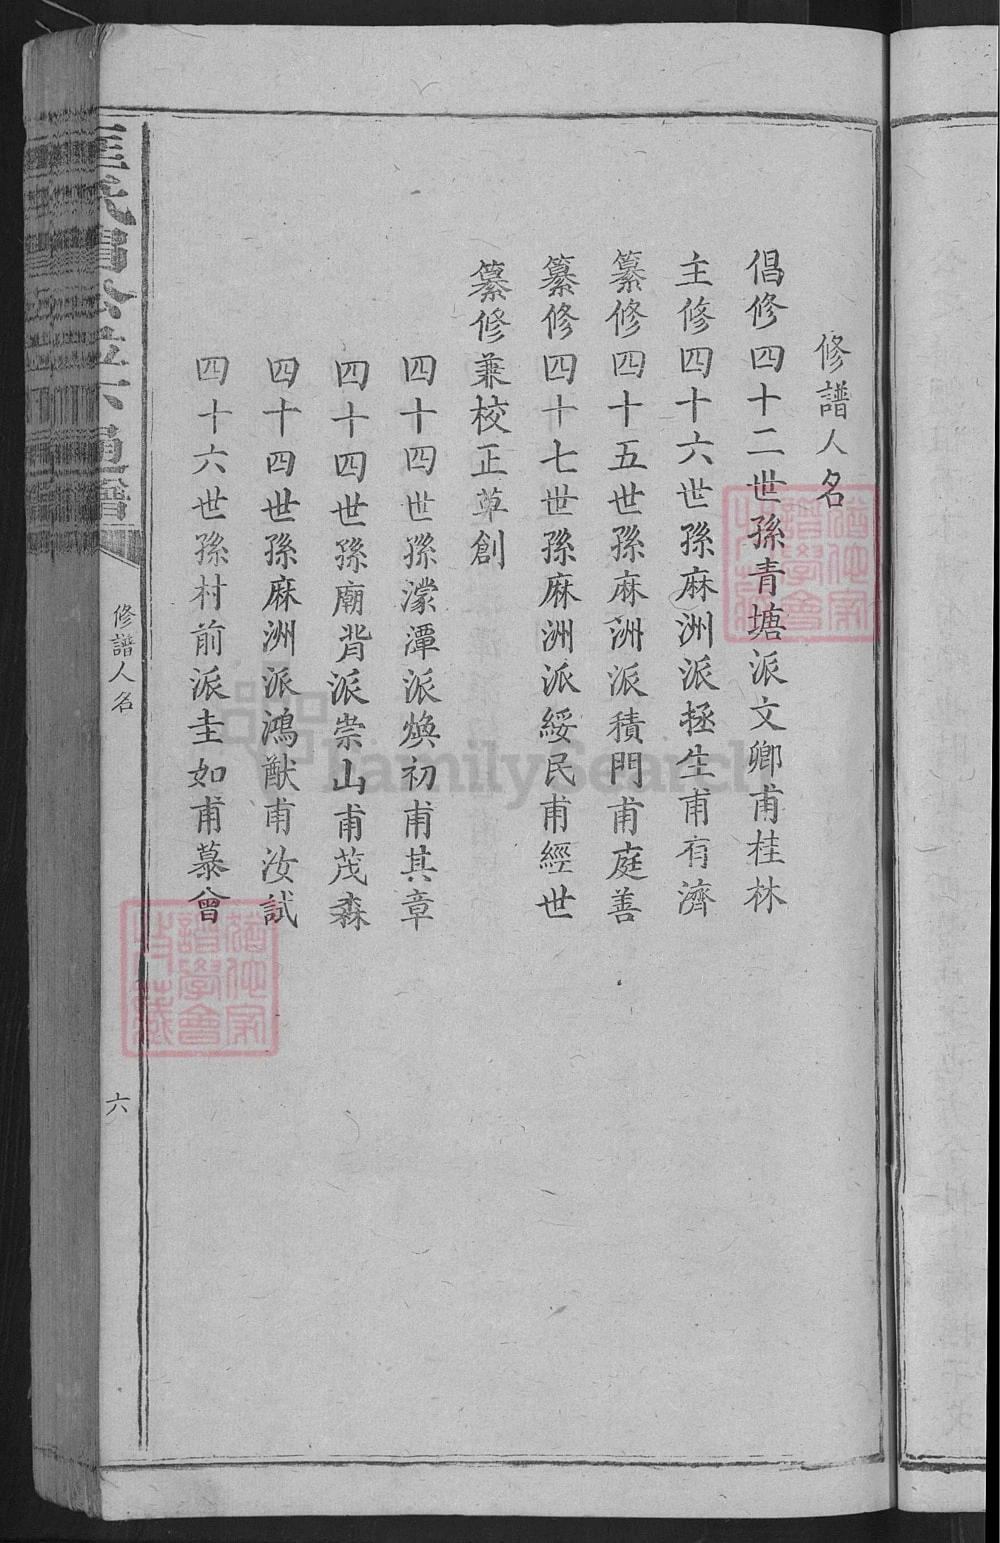 修譜人名
倡修四十二世孫青塘派文卿甫桂林
主修四十六世孫麻洲派拯生甫有濟
纂修四十五世孫麻洲派積門甫庭善
纂修四十七世孫麻洲派綏民甫經世
纂修兼校正草創
四十四世孫濠潭派煥初甫其章
四十四世孫廟背派崇山甫茂森
四十四世孫麻洲派鴻猷甫汝試
四十六世孫村前派圭如甫慕曾
修譜人名
六
FamilySearch